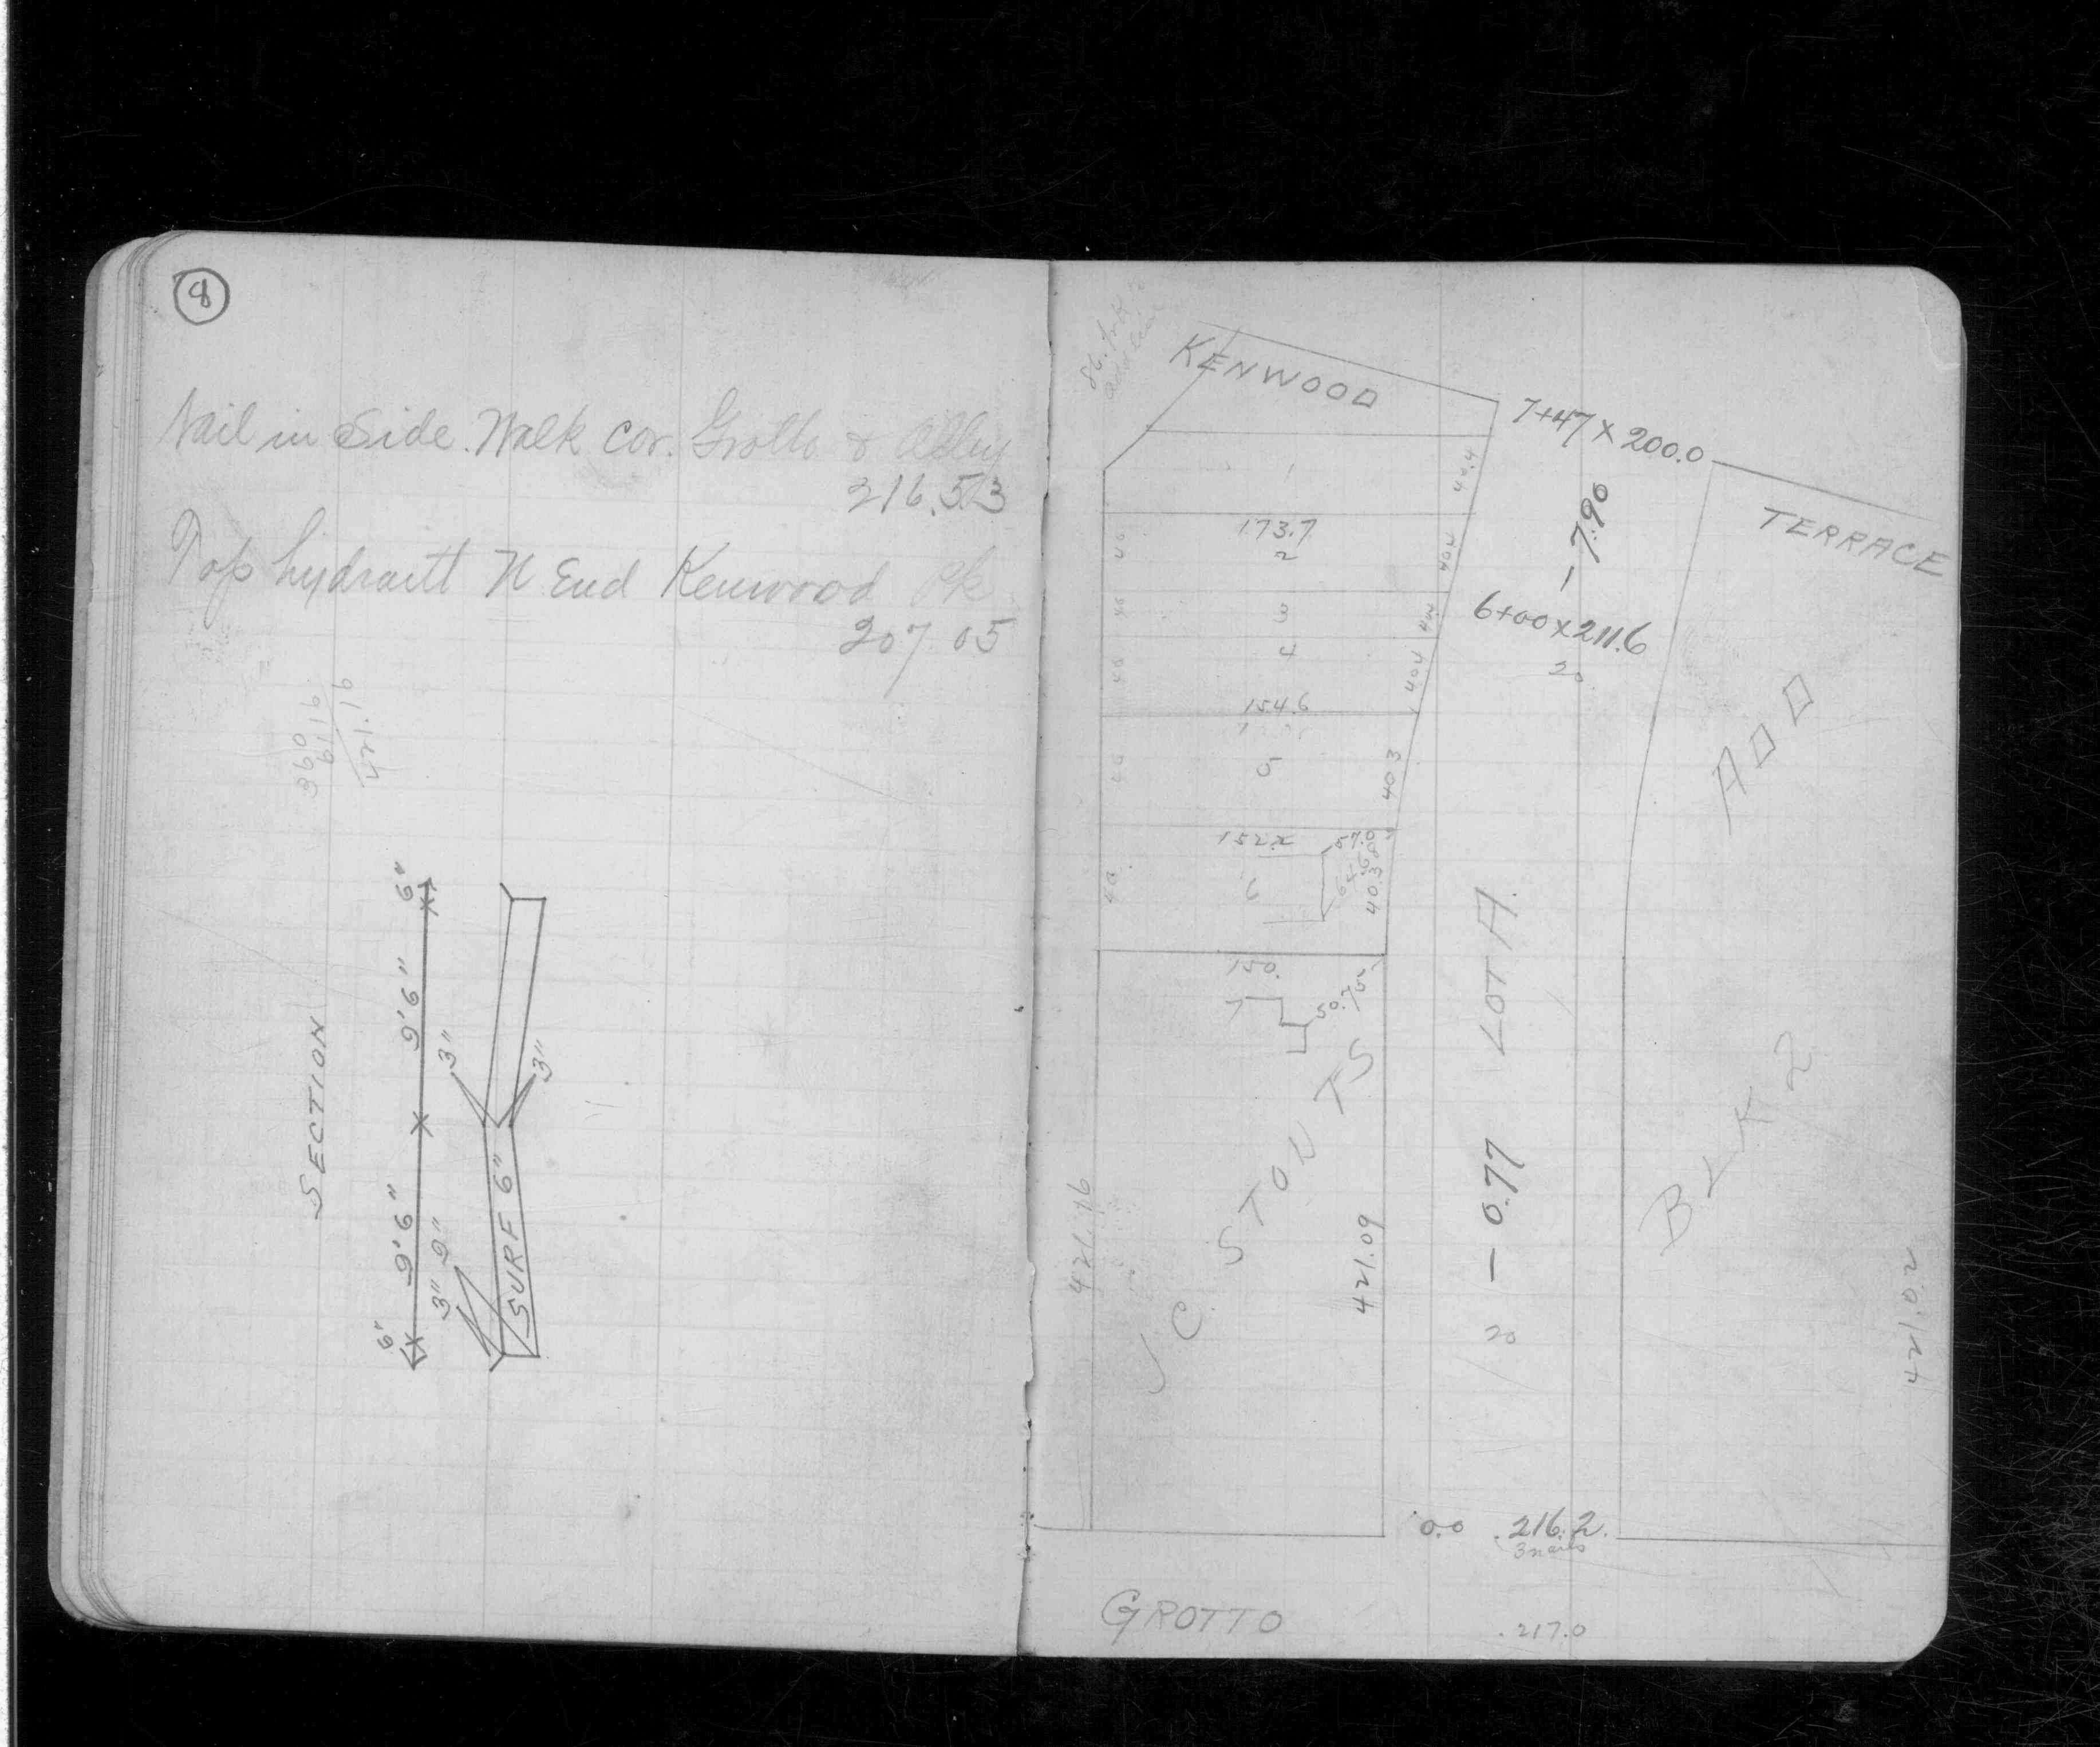 8
Nail in Side Walk cor. Grotto & Alley
216.53
Top hydrantt N End Kenwood Pk
207.05
360
61.16
421.16
SECTION
6" 9'6" 9'6" 6"
3" 9" 3"
3"
SURF 6"
KENWOOD
7+47 x 200.0
TERRACE
1
40.4
173.7
2
40
40.4
- 7.90
3
40
40.4
6+00 x 211.6
20
4
40
40.4
154.6
5
40
40.3
ADD
152.x
57.0
6
40
40.3
LOT A
150.
7
50.7
J C STOUTS
BLK 2
421.16
421.09
- 0.77
20
421.02
0.0 216.2
3 nails
GROTTO
217.0